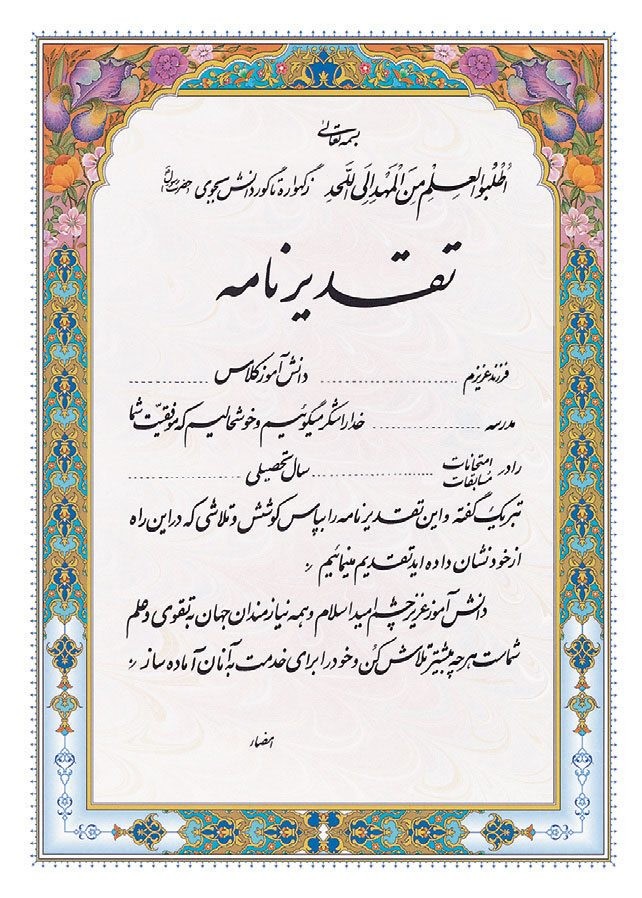 بسمه تعالی
اُطْلُبُوا العِلْمِ مِنَ الْمَهْدِ اِلَی اللَّحَدِ زگهواره تا گور دانش بجوی حضرت رسول
تقدیرنامه
فرزند عزیزم ........................ دانش آموز کلاس ................
مدرسه ........................ خدا را شکر میگوئیم و خوشحالیم که موفقیّت شما
را در امتحانات مسابقات ................ سال تحصیلی ........................
تبریک گفته و این تقدیرنامه را بپاس کوشش و تلاشی که در این راه
از خود نشان داده اید تقدیم مینمائیم
دانش آموز عزیز چشم امید اسلام و همه نیازمندان جهان به تقوی و علم
شماست هر چه بیشتر تلاش کُن و خود را برای خدمت به آنان آماده ساز
امضاء